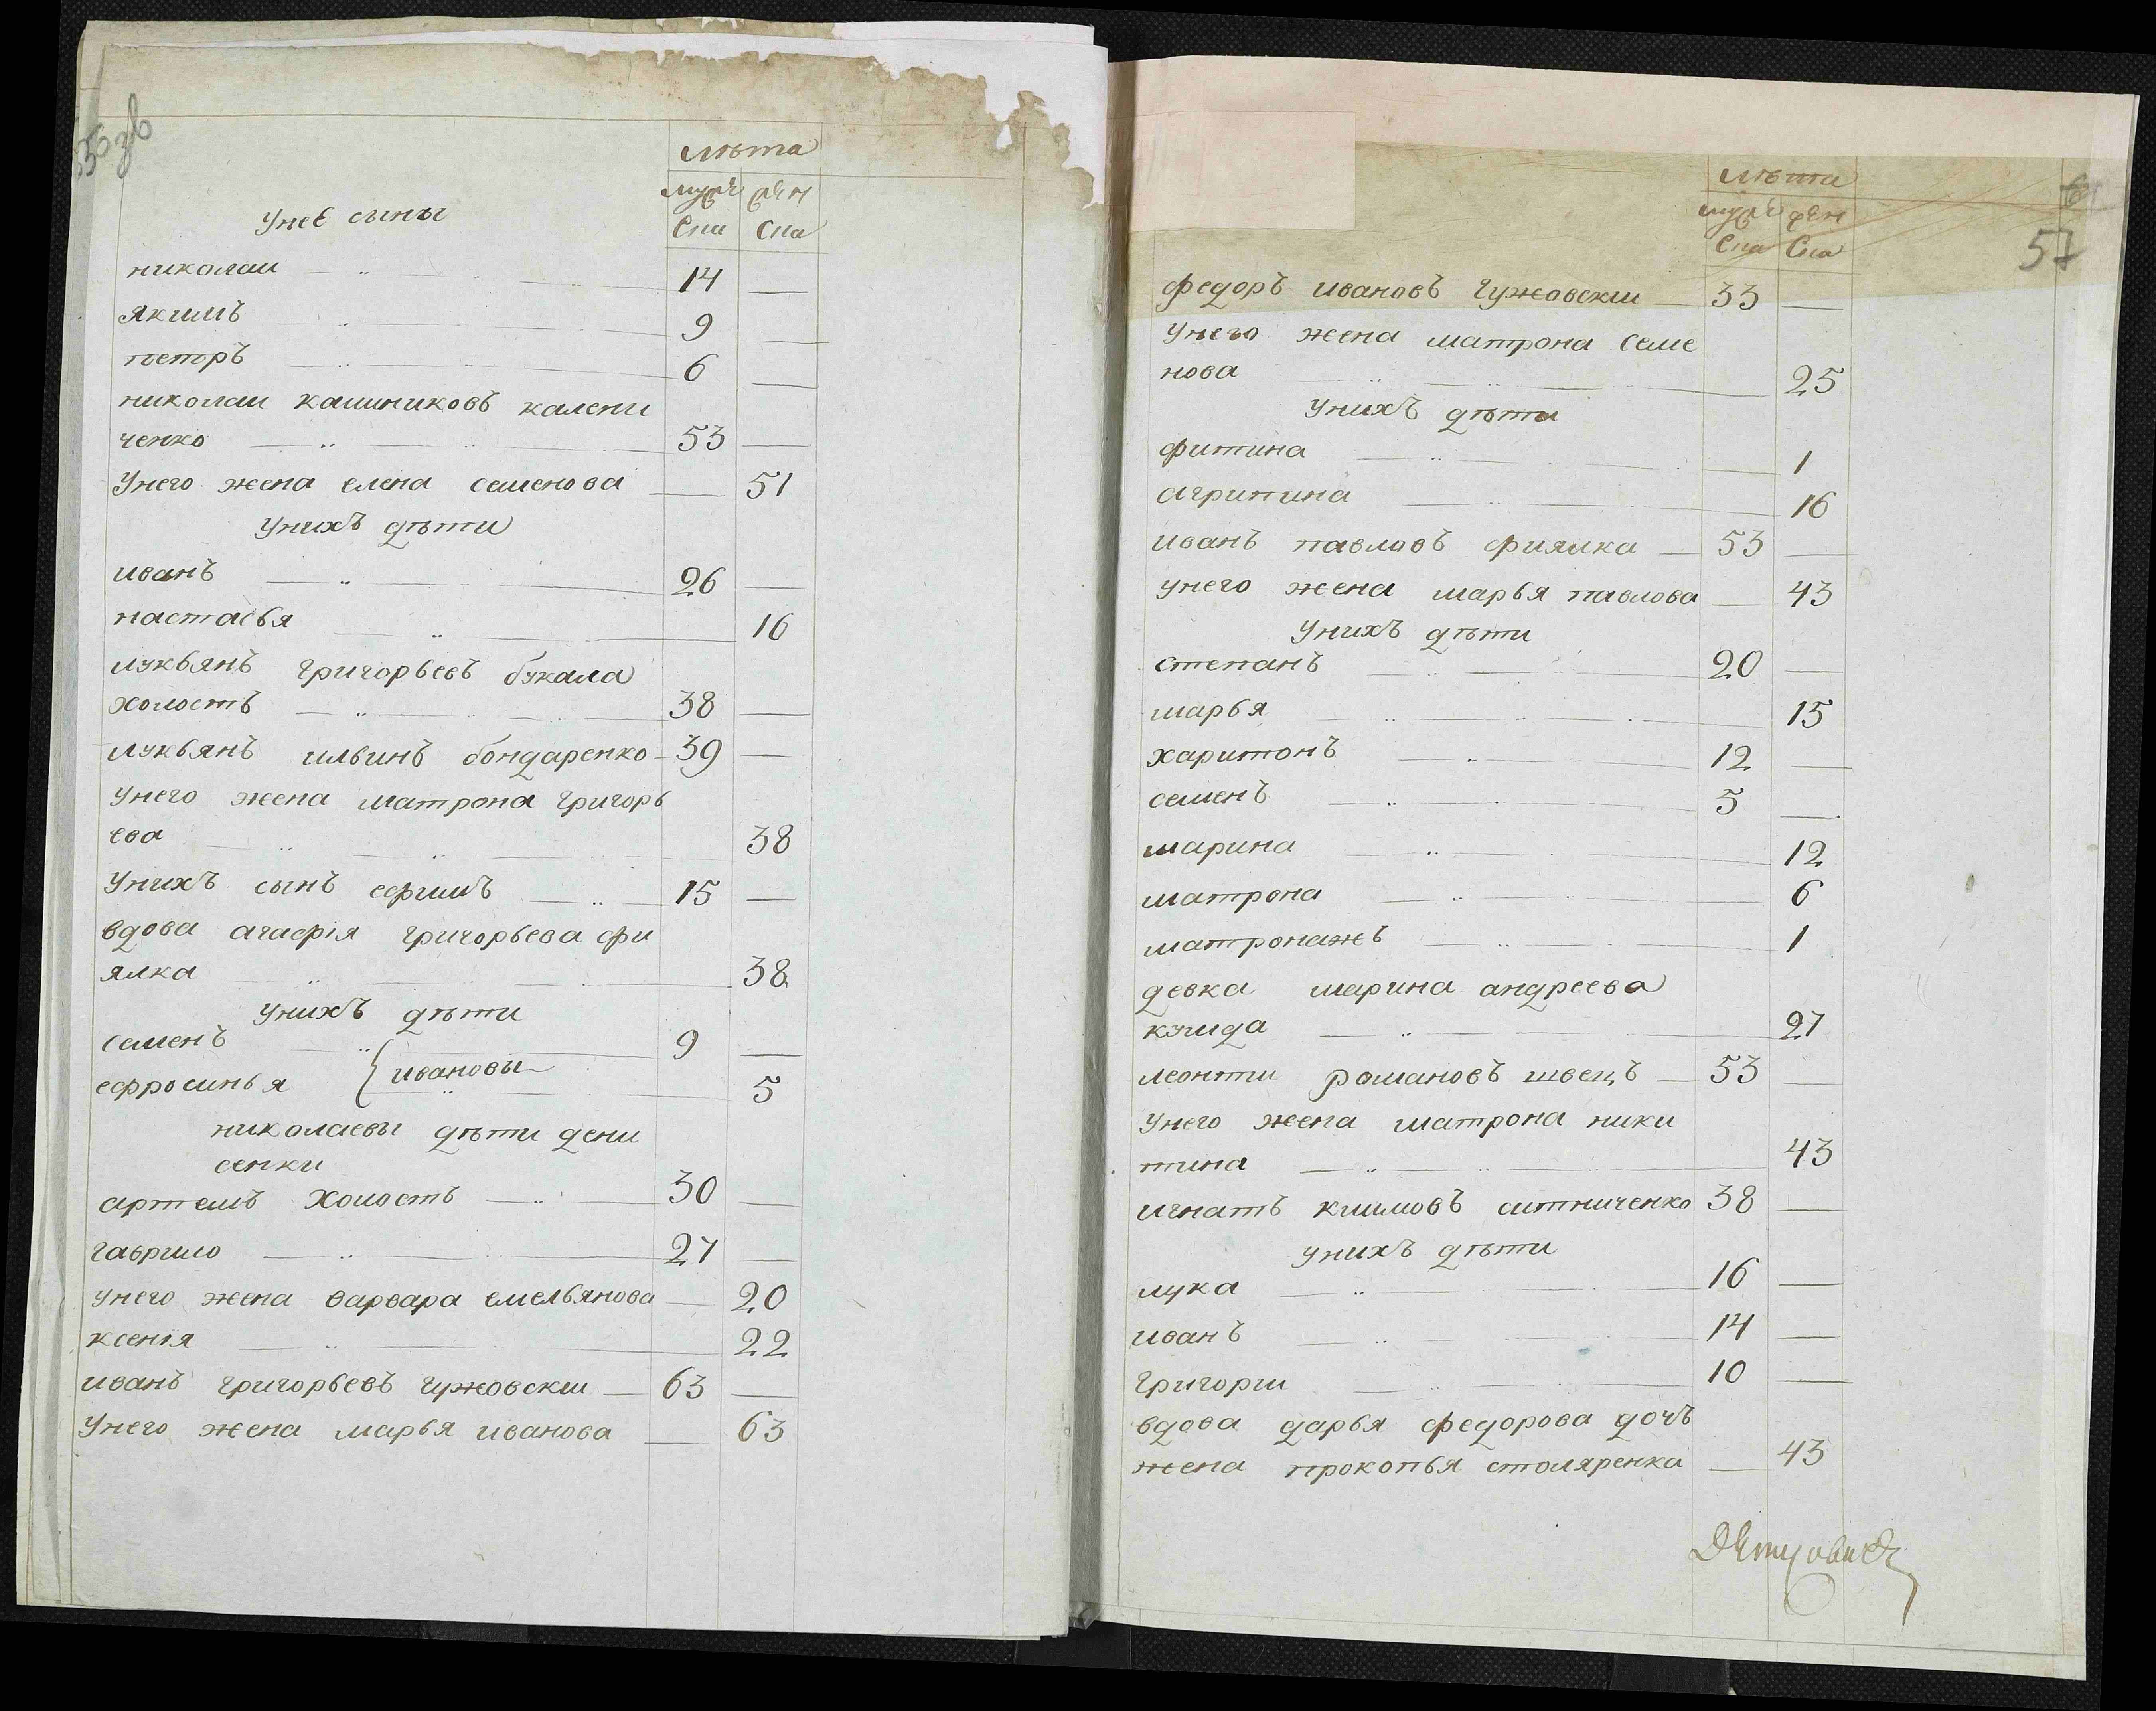 56 зв
лѣта
муж жен
ска ска
у неє сыны
николаи 14
якимъ 9
петръ 6
николаи кашниковъ калени
ченко 53
у него жена елена семенова 51
у нихъ дѣти
иванъ 26
настасья 16
лукьянъ григорьевъ букала
холостъ 38
лукьянъ ильинъ бондаренко 39
у него жена матрона григорь
ева 38
у нихъ сынъ ефимъ 15
вдова агафія григорьева фи
ялка 38
у нихъ дѣти
семенъ 9
ивановы
ефросинья 5
николаевы дѣти дени
сенки
артемъ холостъ 30
гаврило 27
у него жена варвара емельянова 20
ксенія 22
иванъ григорьевъ чужовскии 63
у него жена марья иванова 63
57
лѣта
муж жен
ска ска
федоръ ивановъ чужовскии 33
у него жена матрона семе
нова 25
у нихъ дѣти
фитина 1
агрипина 16
иванъ павловъ фиялка 53
у него жена марья павлова 43
у нихъ дѣти
степанъ 20
марья 15
харитонъ 12
семенъ 5
марина 12
матрона 6
матронажъ 1
девка марина андреева
27
леонти романовъ швецъ 53
у него жена матрона ники
тина 43
игнатъ климовъ ситниченко 38
у нихъ дѣти
лука 16
иванъ 14
григории 10
вдова дарья федорова дочъ
жена прокопья столяренка 43